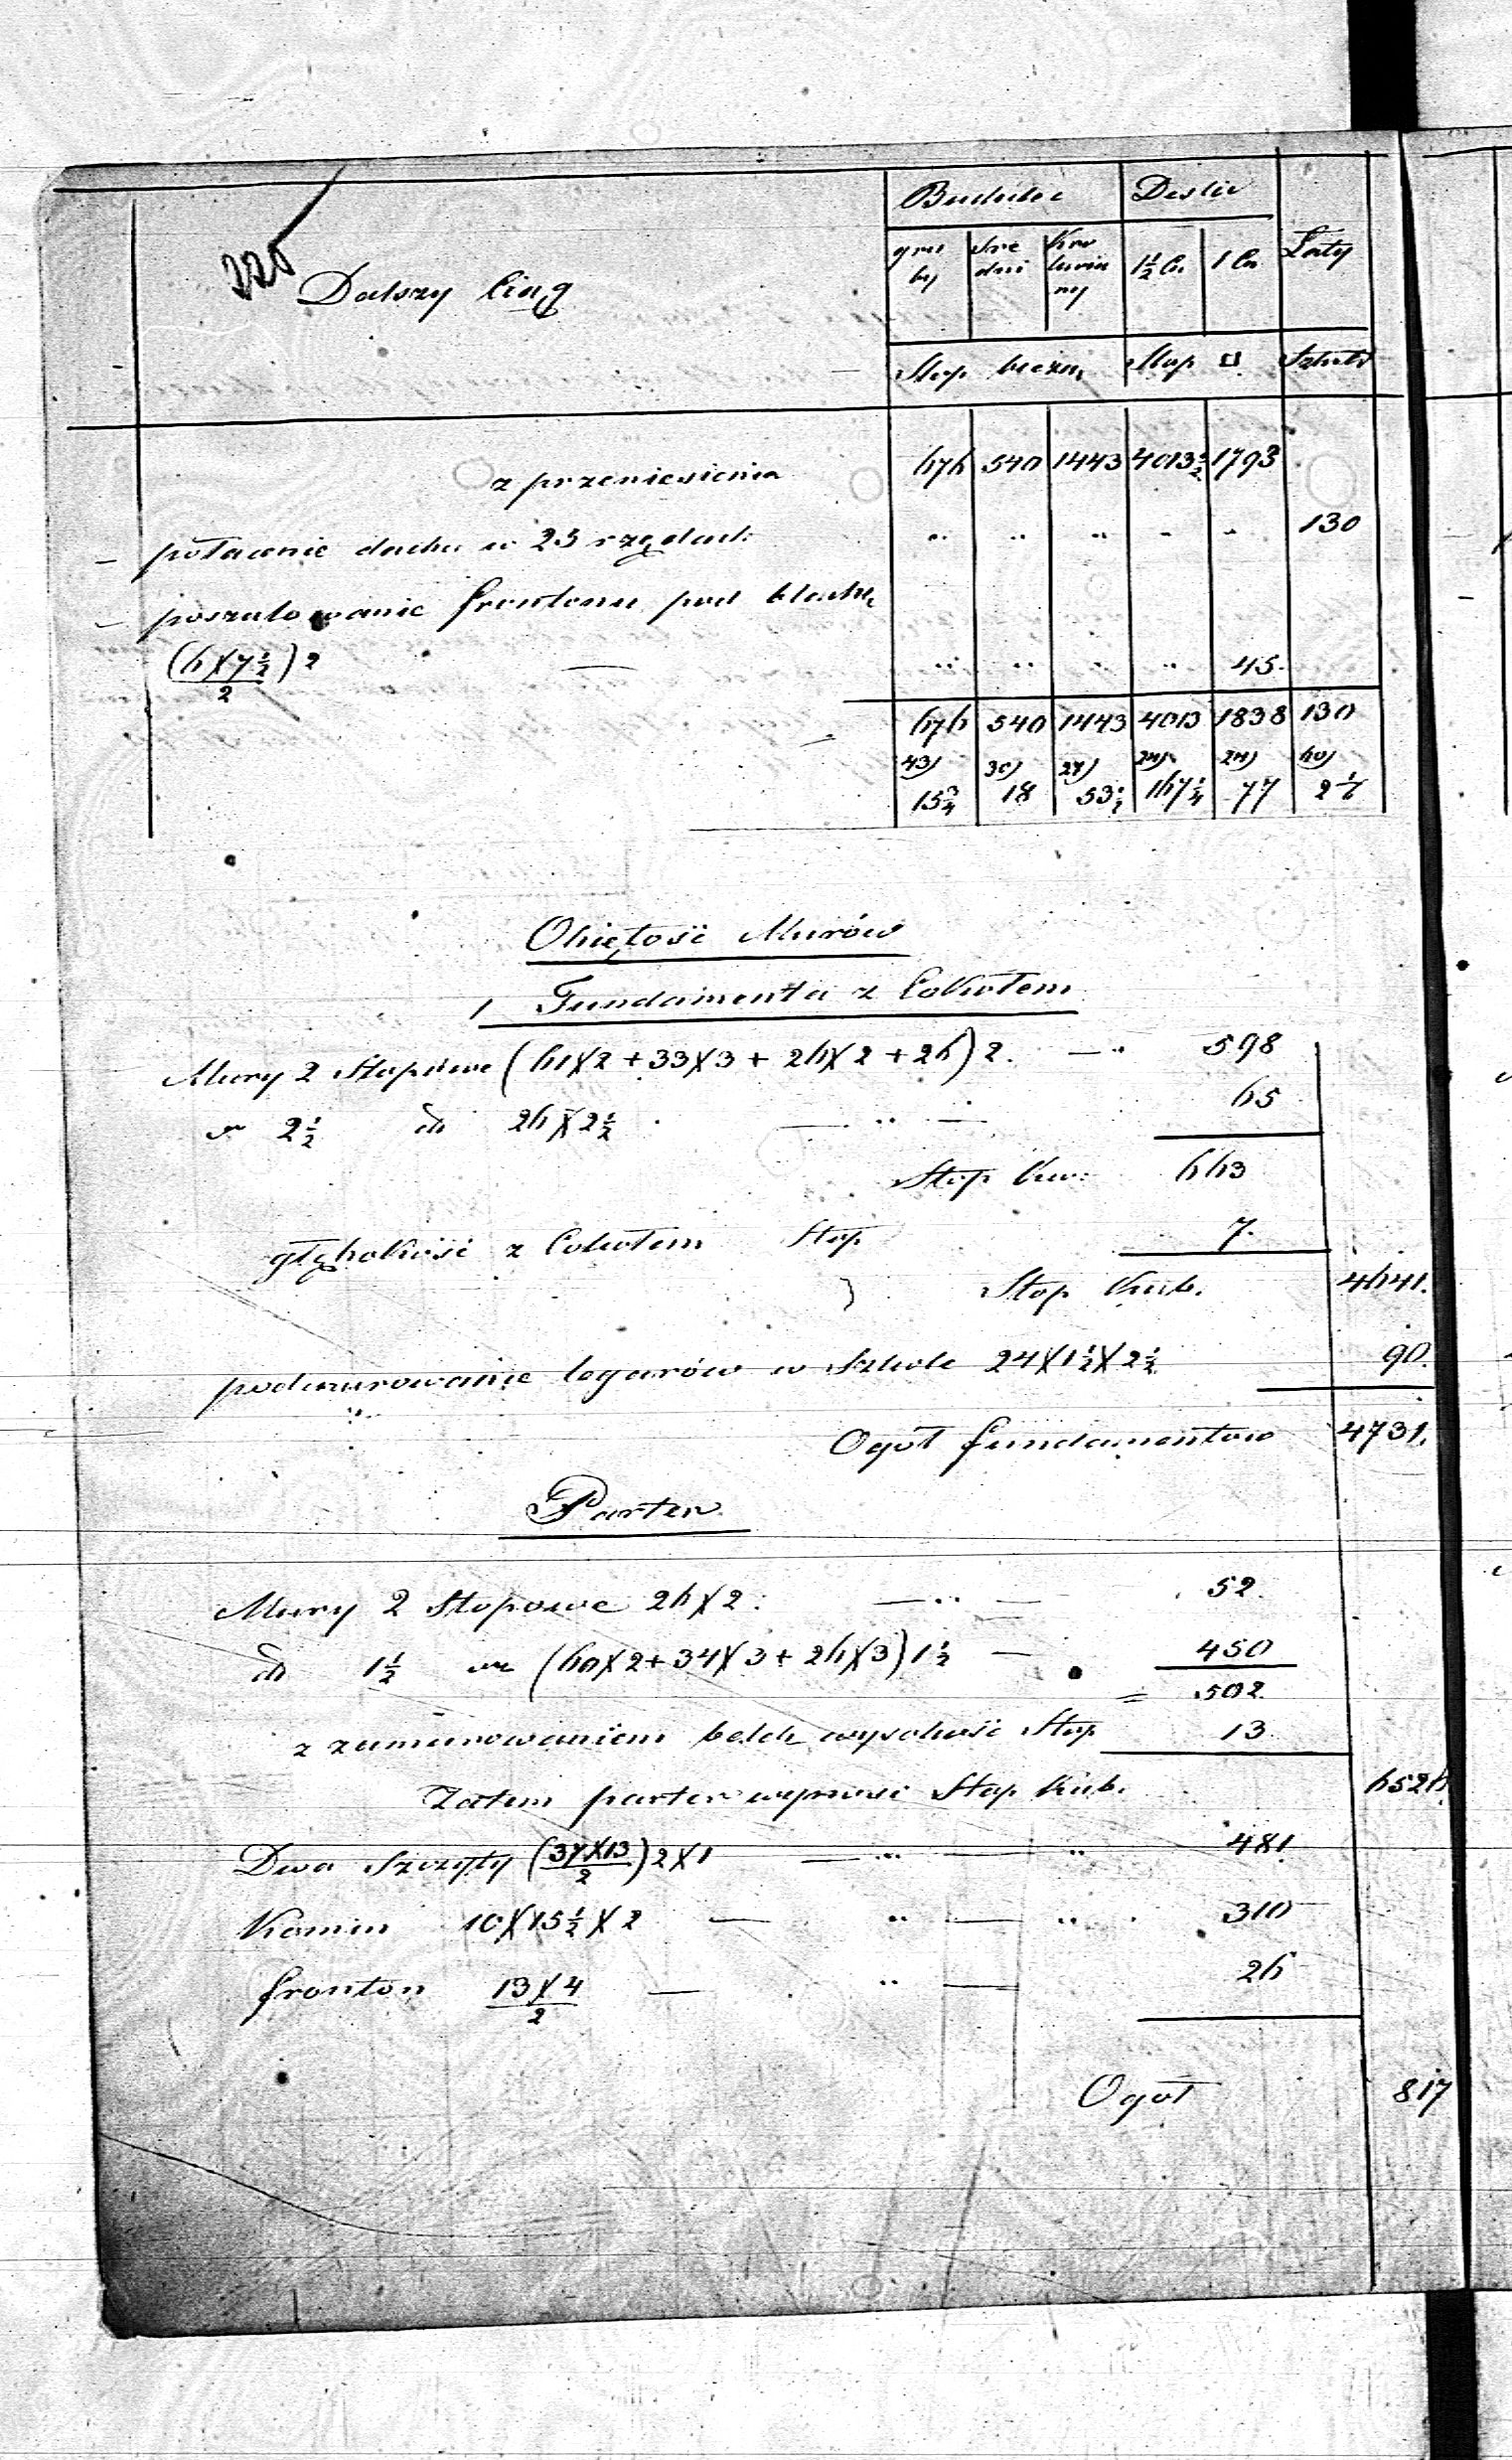 225
Dalszy Ciąg
Budulec Deski Łaty
gru by śre dni Kro kwia ny 1½ Ca. 1 Ca
Stop bieżn, Stop □ Sztuk
z przeniesienia 676 540 1443 4013½ 1793
– połacenie dachu w 23 rzędach „ „ „ „ „ 130
– poszalowanie frontonu pod blachę
(6X7½)2 / 2 — „ „ „ „ 45.
676 540 1443 4013 1838 130
43) 30) 27) 24) 24) 60)
15¾ 18 53½ 167¼ 77 2⅙
Obiętość Murów
1 Fundamenta z Cokołem
Mury 2 Stopowe (61X2 + 33X3 + 26X2 + 26) 2. — „ 598
" 2½ do 26X2½ . — „ — 65
Stop kw: 663
głębokość z Cokołem Stop 7.
Stop Kub. 4641.
podmurowanie legarów w Szkole 24X1½X2½ 90.
Ogół fundamentów 4731.
Parter
Mury 2 Stopowe 26X2: — „ — 52.
do 1½ (60X2+34X3+26X3)1½ — 450
= 502.
z zamurowaniem belek wysokość Stop 13
Zatem parter wynosi Stop Kub. 6526.
Dwa Szczyty (37X13 / 2) 2X1 — „ — „ 481
Komin 10X15½X2 — „ — „ 310
fronton 13X4 / 2 — „ — 26
Ogół 817